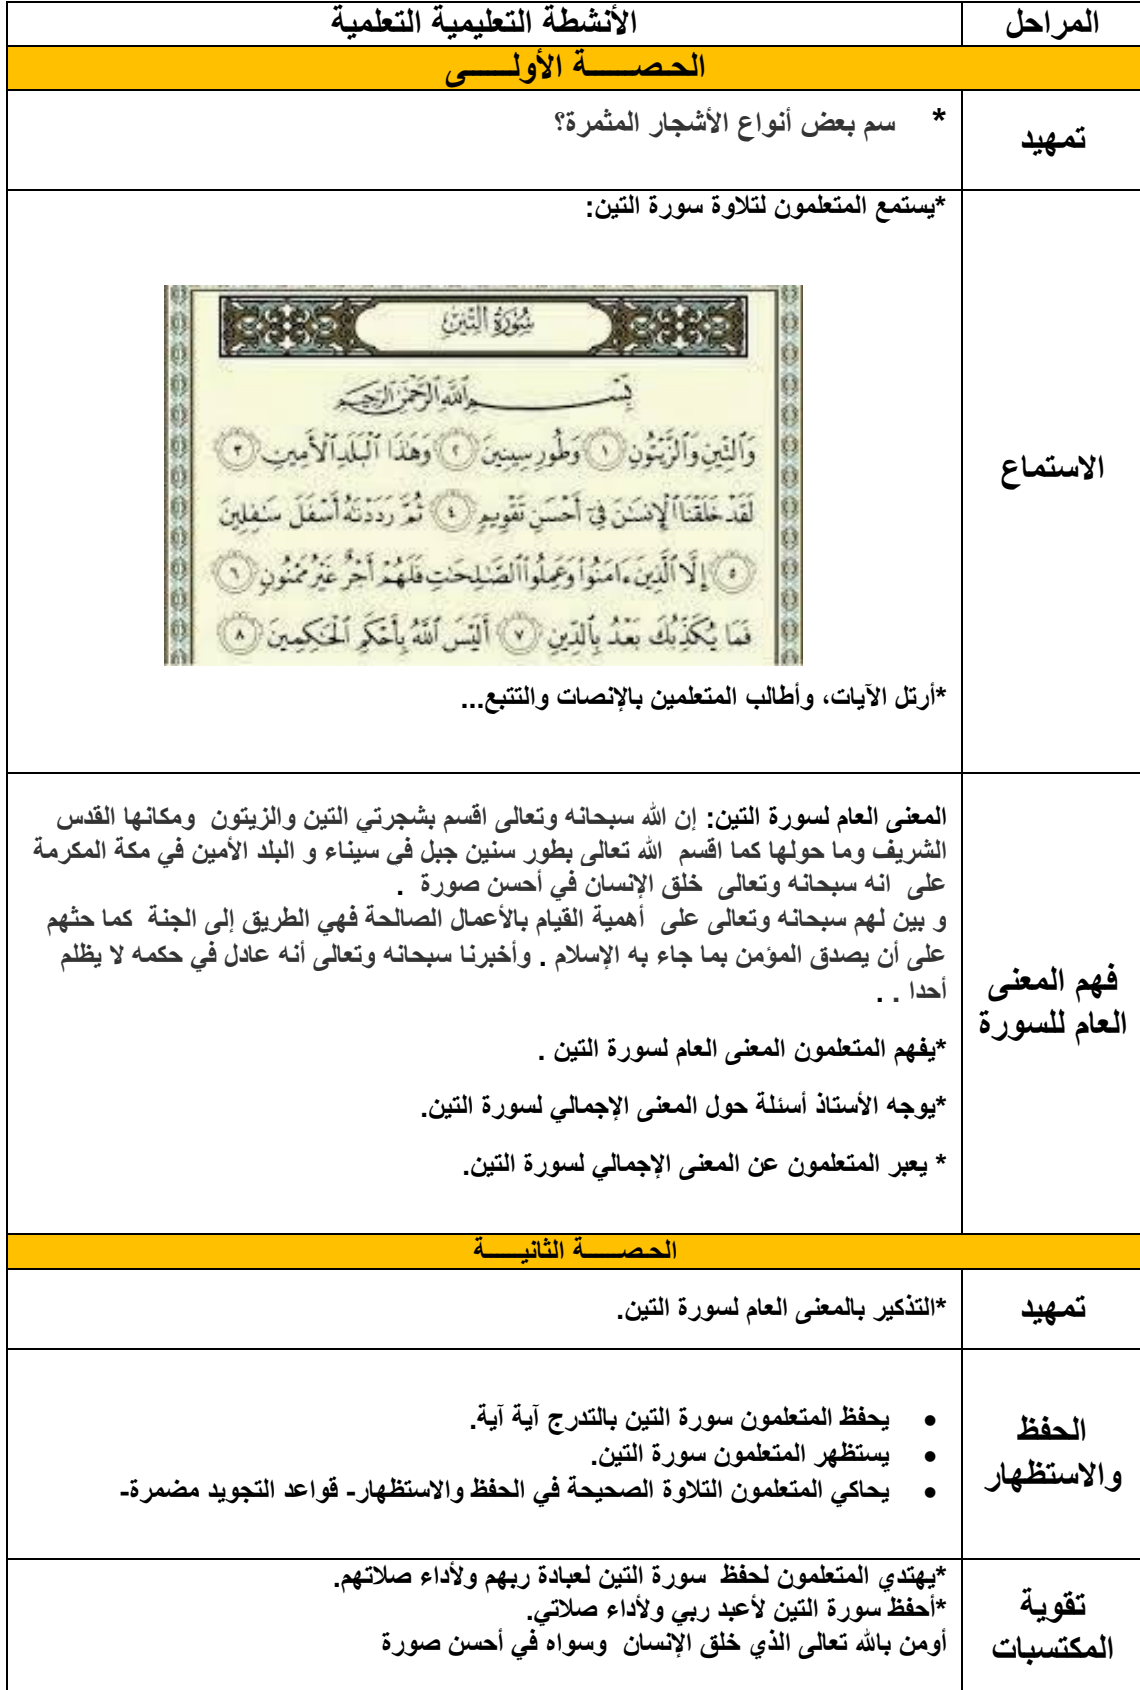 المراحل
الأنشطة التعليمية التعلمية
الحصـــــة الأولـــــى
تمهيد
* سم بعض أنواع الأشجار المثمرة؟
الاستماع
*يستمع المتعلمون لتلاوة سورة التين:
سُورَةُ التِّينِ
بِسْمِ ٱللَّهِ ٱلرَّحْمَٰنِ ٱلرَّحِيمِ
وَٱلتِّينِ وَٱلزَّيْتُونِ ﴿١﴾ وَطُورِ سِينِينَ ﴿٢﴾ وَهَٰذَا ٱلْبَلَدِ ٱلْأَمِينِ ﴿٣﴾
لَقَدْ خَلَقْنَا ٱلْإِنسَٰنَ فِىٓ أَحْسَنِ تَقْوِيمٍ ﴿٤﴾ ثُمَّ رَدَدْنَٰهُ أَسْفَلَ سَٰفِلِينَ
﴿٥﴾ إِلَّا ٱلَّذِينَ ءَامَنُوا۟ وَعَمِلُوا۟ ٱلصَّٰلِحَٰتِ فَلَهُمْ أَجْرٌ غَيْرُ مَمْنُونٍ ﴿٦﴾
فَمَا يُكَذِّبُكَ بَعْدُ بِٱلدِّينِ ﴿٧﴾ أَلَيْسَ ٱللَّهُ بِأَحْكَمِ ٱلْحَٰكِمِينَ ﴿٨﴾
*أرتل الآيات، وأطالب المتعلمين بالإنصات والتتبع...
فهم المعنى
العام للسورة
المعنى العام لسورة التين: إن الله سبحانه وتعالى اقسم بشجرتي التين والزيتون ومكانها القدس
الشريف وما حولها كما اقسم الله تعالى بطور سنين جبل في سيناء و البلد الأمين في مكة المكرمة
على انه سبحانه وتعالى خلق الإنسان في أحسن صورة .
و بين لهم سبحانه وتعالى على أهمية القيام بالأعمال الصالحة فهي الطريق إلى الجنة كما حثهم
على أن يصدق المؤمن بما جاء به الإسلام . وأخبرنا سبحانه وتعالى أنه عادل في حكمه لا يظلم
أحدا . .
*يفهم المتعلمون المعنى العام لسورة التين .
*يوجه الأستاذ أسئلة حول المعنى الإجمالي لسورة التين.
* يعبر المتعلمون عن المعنى الإجمالي لسورة التين.
الحصـــــة الثانيـــــة
تمهيد
*التذكير بالمعنى العام لسورة التين.
الحفظ
والاستظهار
• يحفظ المتعلمون سورة التين بالتدرج آية آية.
• يستظهر المتعلمون سورة التين.
• يحاكي المتعلمون التلاوة الصحيحة في الحفظ والاستظهار- قواعد التجويد مضمرة-
تقوية
المكتسبات
*يهتدي المتعلمون لحفظ سورة التين لعبادة ربهم ولأداء صلاتهم.
*أحفظ سورة التين لأعبد ربي ولأداء صلاتي.
أومن بالله تعالى الذي خلق الإنسان وسواه في أحسن صورة